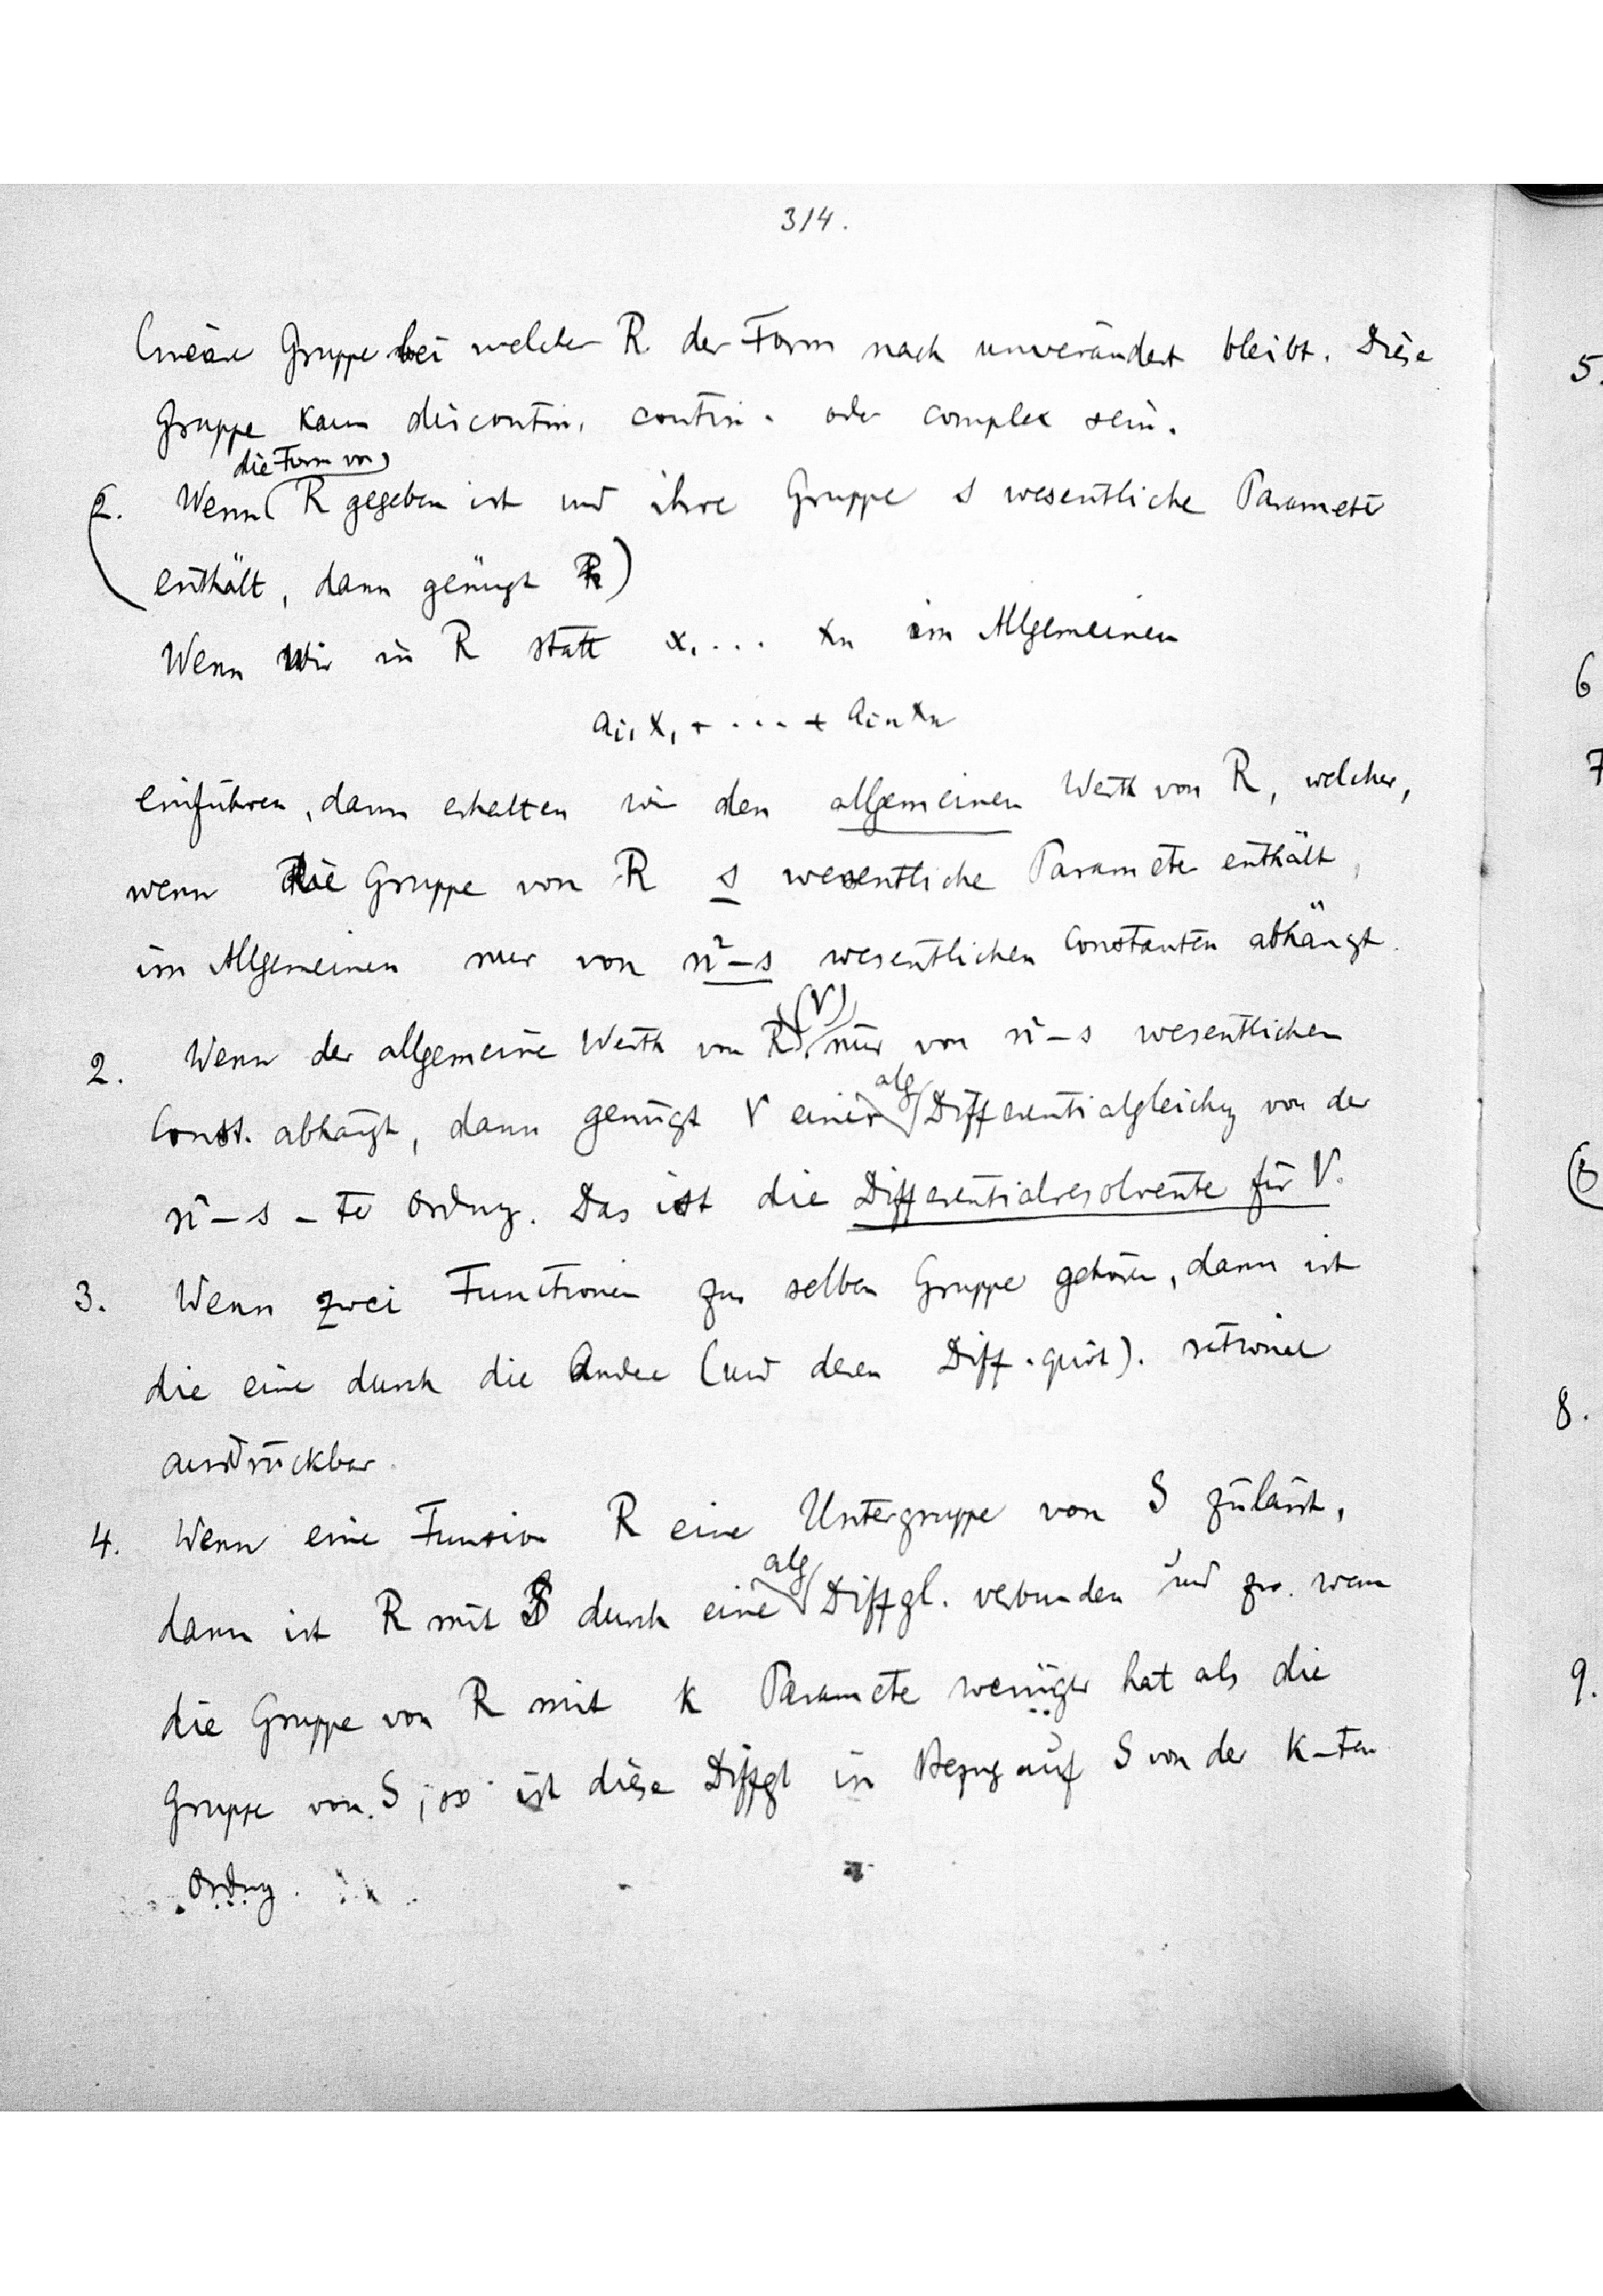 314.
lineäre Gruppe bei welcher R der Form nach unverändert bleibt. Diese
Gruppe kann discontin, contin. oder complex sein.
die Form von
(2. Wenn R gegeben ist und ihre Gruppe s wesentliche Parameter
enthält, dann genügt R)
Wenn wir in R statt x₁ .... xn im Allgemeinen
ai₁x₁ + .... + ainxn
einführen, dann erhalten wir den allgemeinen Werth von R, welcher,
wenn die Gruppe von R s wesentliche Paramete enthält,
im Allgemeinen nur von n²-s wesentlichen Constanten abhängt.
(V)
2. Wenn der allgemeine Werth von R nur von n²-s wesentlichen
alg
Const. abhängt, dann genügt V einer Differentialgleichg von der
n²-s-te Ordnug. Das ist die Differentialresolvente für V.
3. Wenn zwei Functionen zur selben Gruppe gehören, dann ist
die eine durch die Andere (und deren Diff.quot). rational
ausdrückbar.
4. Wenn eine Funsion R eine Untergruppe von S zulässt,
alg
dann ist R mit S durch eine Diffgl. verbunden und zw. wenn
die Gruppe von R mit k Paramete weniger hat als die
Gruppe von S, so ist diese Diffgl in Bezug auf S von der k-ten
Ordnug.
5.
6
7
(8
8.
9.